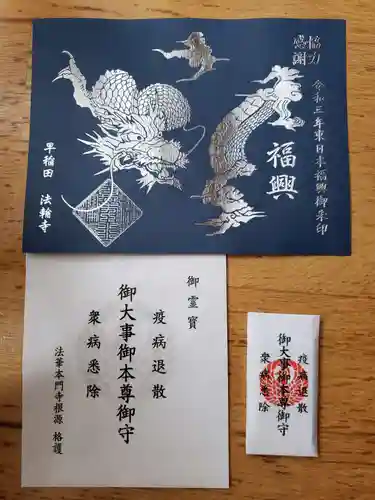 感謝
協力
令和三年東日本福興御朱印
福興
早稲田 法輪寺
御靈寶
疫病退散
御大事御本尊御守
衆病悉除
法華本門寺根源 格護
疫病退散
御大事御本尊御守
衆病悉除